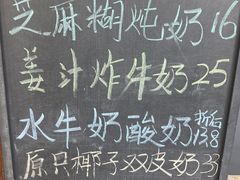 芝麻糊炖奶16
姜汁炸牛奶25
水牛奶酸奶折后13.8
原只椰子双皮奶33